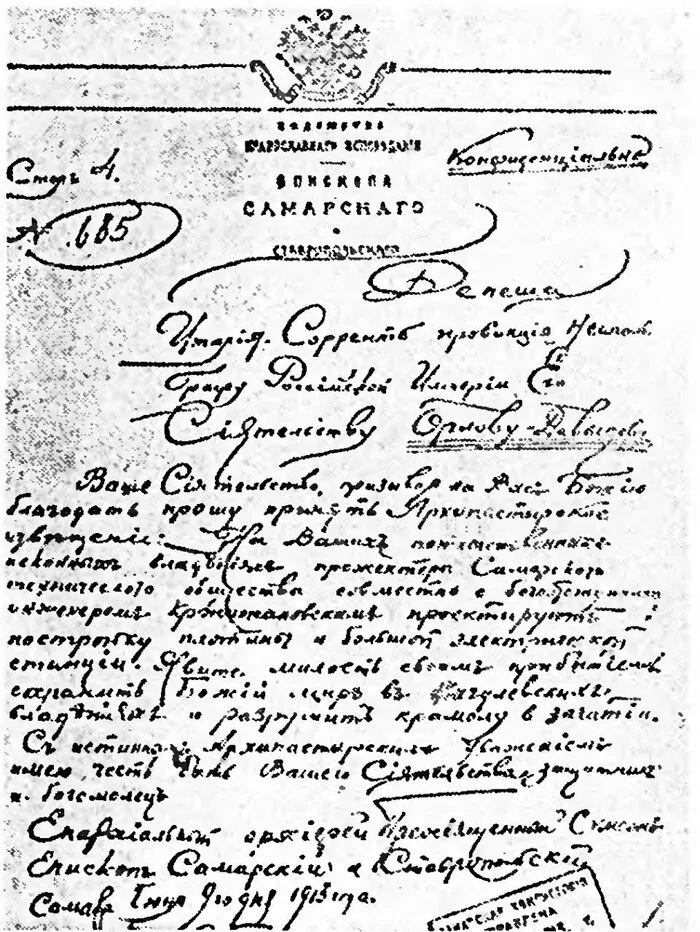 ВѢДОМСТВО
ПРАВОСЛАВНАГО ИСПОВѢДАНІЯ
Конфиденціально
ЕПИСКОПА
САМАРСКАГО
и
СТАВРОПОЛЬСКАГО
Столъ 4.
№ 685
Депеша
Италія. Соррентъ провинція Неаполь
Графу Россійской Имперіи Его
Сіятельству Орлову-Давыдову
Ваше Сіятельство, призывая на Васъ Божію
благодать прошу принять Архипастырское
извѣщеніе: На Вашихъ потомственныхъ
исконныхъ владѣніяхъ прожектеры Самарского
технического общества совместно с богоотступникомъ
инженеромъ Кржижановскимъ проектируютъ
постройку плотины и большой электрической
станціи. Явите милость своимъ прибытіемъ
сохранить Божій миръ въ Жигулевскихъ
владѣніяхъ и разрушить крамолу в зачатіи.
Съ истиннымъ Архипастырскимъ уваженіемъ
имею честь быть Вашего Сіятельства защитникъ
и богомолецъ
Епархіальный архіерей Преосвященный Симеонъ
Епископъ Самарскій и Ставропольскій
Самара Іюня 9 годня 1913 года.